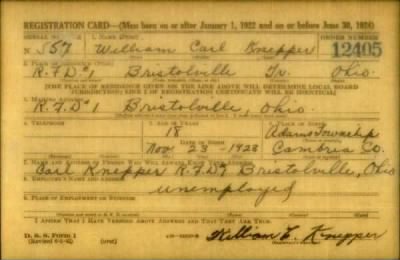 REGISTRATION CARD—(Men born on or after January 1, 1922 and on or before June 30, 1924)
SERIAL NUMBER 1. NAME (Print) ORDER NUMBER
N 157 William Carl Knepper 12405
2. PLACE OF RESIDENCE (Print)
R.F.D. 1 Bristolville Tr. Ohio
[THE PLACE OF RESIDENCE GIVEN ON THE LINE ABOVE WILL DETERMINE LOCAL BOARD
JURISDICTION; LINE 2 OF REGISTRATION CERTIFICATE WILL BE IDENTICAL]
3. MAILING ADDRESS
R.F.D. 1 Bristolville, Ohio.
4. TELEPHONE 5. AGE IN YEARS 6. PLACE OF BIRTH
18 Adams Township
DATE OF BIRTH
Nov 23 - 1923 Cambria Co.
7. NAME AND ADDRESS OF PERSON WHO WILL ALWAYS KNOW YOUR ADDRESS
Carl Knepper R.F.D. 1 Bristolville, Ohio
8. EMPLOYER'S NAME AND ADDRESS
unemployed
9. PLACE OF EMPLOYMENT OR BUSINESS
I AFFIRM THAT I HAVE VERIFIED ABOVE ANSWERS AND THAT THEY ARE TRUE.
D. S. S. Form 1
(over)
William C. Knepper